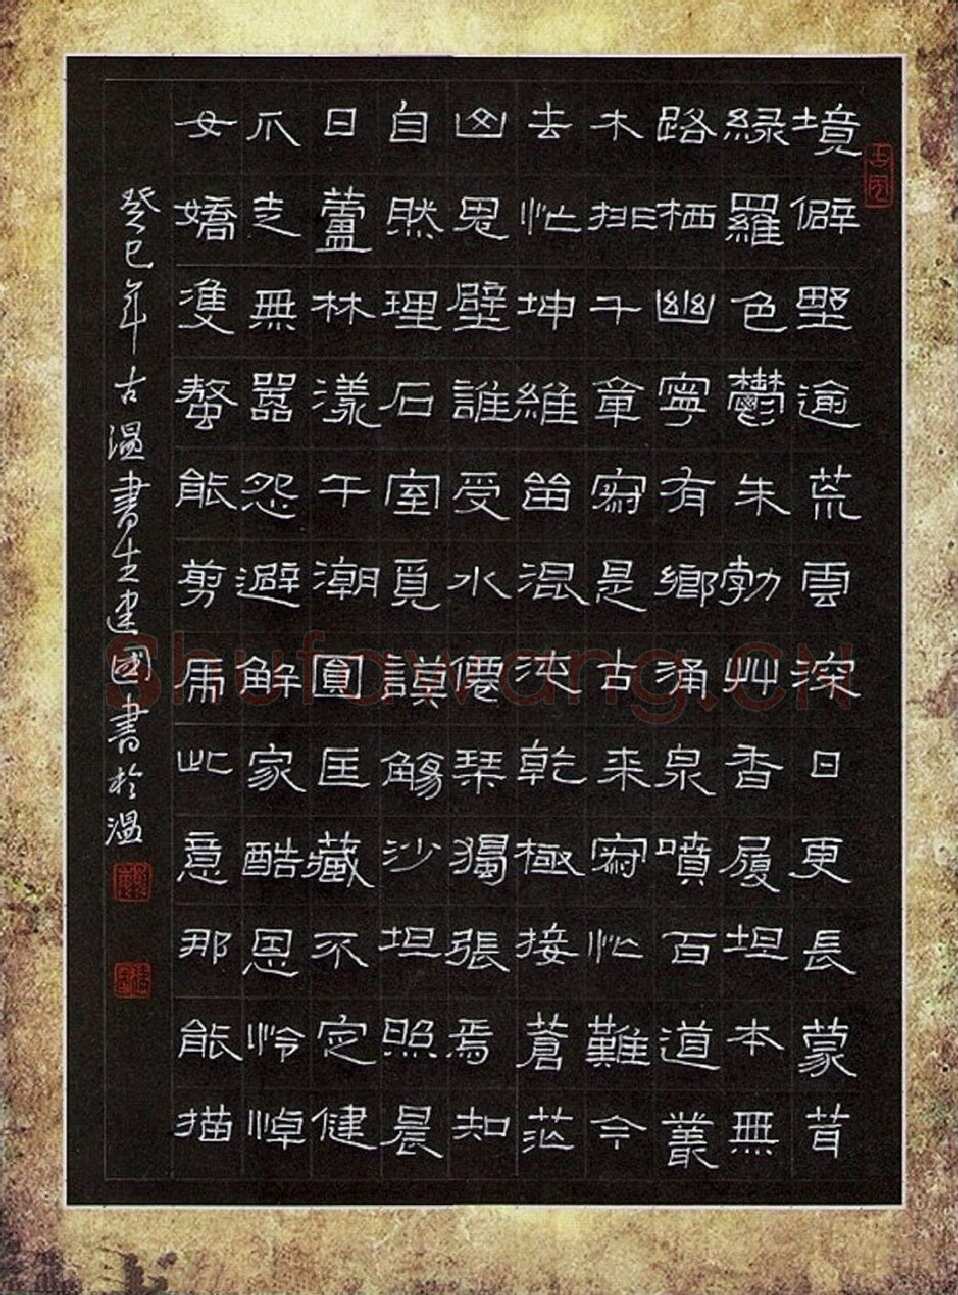 境僻野逾荒雲深日更長蒙茸
緑羅色鬱朱勃艸香履坦本無
路栖幽寧有鄉涌泉噴百道叢
木排千章窮是古来窮忙難今
去忙坤維笛混沌乾極接蒼茫
凶思壁誰受水僊琴獨張焉知
自然理石室覓謨觴沙坦照晨
日蘆林漾午潮圓匡藏不定健
爪走無囂怨避解家酷恩怜悼
女嬌隻螯能剪馬此意那能描
癸巳年古溫書生建國書於溫
Shufawang.CN